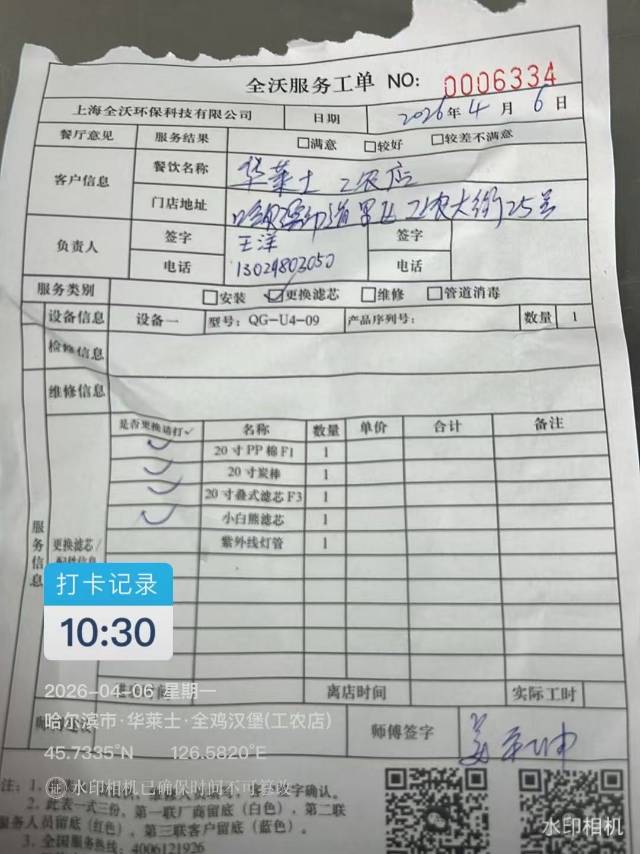 全沃服务工单 NO: 0006334
上海全沃环保科技有限公司 日期 2026年4月6日
餐厅意见 服务结果 □满意 □较好 □较差不满意
客户信息 餐饮名称 华莱士 工农店
门店地址 哈尔滨市道里区工农大街25号
负责人 签字 王洋 签字
电话 13029803050 电话
服务类别 □安装 ☑更换滤芯 □维修 □管道消毒
设备信息 设备一 型号: QG-U4-09 产品序列号: 数量 1
检修信息
维修信息
服务信息
更换滤芯/
是否更换请打✓ 名称 数量 单价 合计 备注
✓ 20寸PP棉F1 1
✓ 20寸炭棒 1
✓ 20寸叠式滤芯F3 1
✓ 小白熊滤芯 1
紫外线灯管 1
打卡记录
10:30
离店时间 实际工时
2026-04-06 星期一
哈尔滨市·华莱士·全鸡汉堡(工农店)
师傅签字
45.7335°N 126.5820°E
水印相机已确保时间不可篡改
字确认。
2. 此表一式三份，第一联厂商留底（白色），第二联
服务人员留底（红色），第三联客户留底（蓝色）。
3. 全国服务热线: 4006121926
水印相机